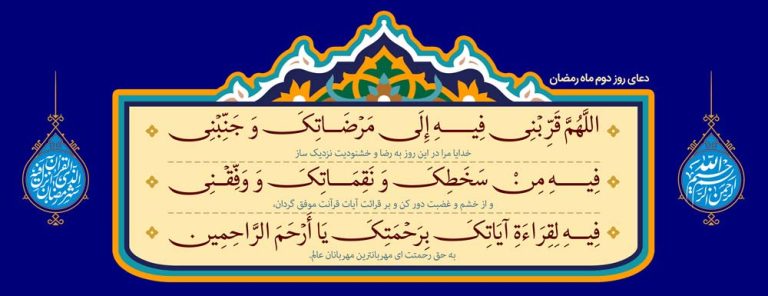 دعای روز دوم ماه رمضان
اللَّهُمَّ قَرِّبْنِی فِیهِ إِلَی مَرْضَاتِکَ وَ جَنِّبْنِی
خدایا مرا در این روز به رضا و خشنودیت نزدیک ساز
فِیهِ مِنْ سَخَطِکَ وَ نَقِمَاتِکَ وَ وَفِّقْنِی
و از خشم و غضبت دور کن و بر قرائت آیات قرآنت موفق گردان،
فِیهِ لِقِرَاءَةِ آیَاتِکَ بِرَحْمَتِکَ یَا أَرْحَمَ الرَّاحِمِین
به حق رحمتت ای مهربانترین مهربانان عالم.
بسم الله الرحمن الرحیم
شهر رمضان الذی انزل فیه القرآن